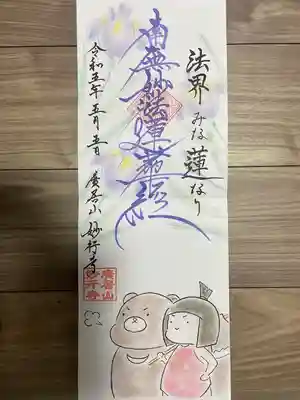 法界みな蓮なり
南無妙法蓮華経
令和五年五月五日
妙行寺